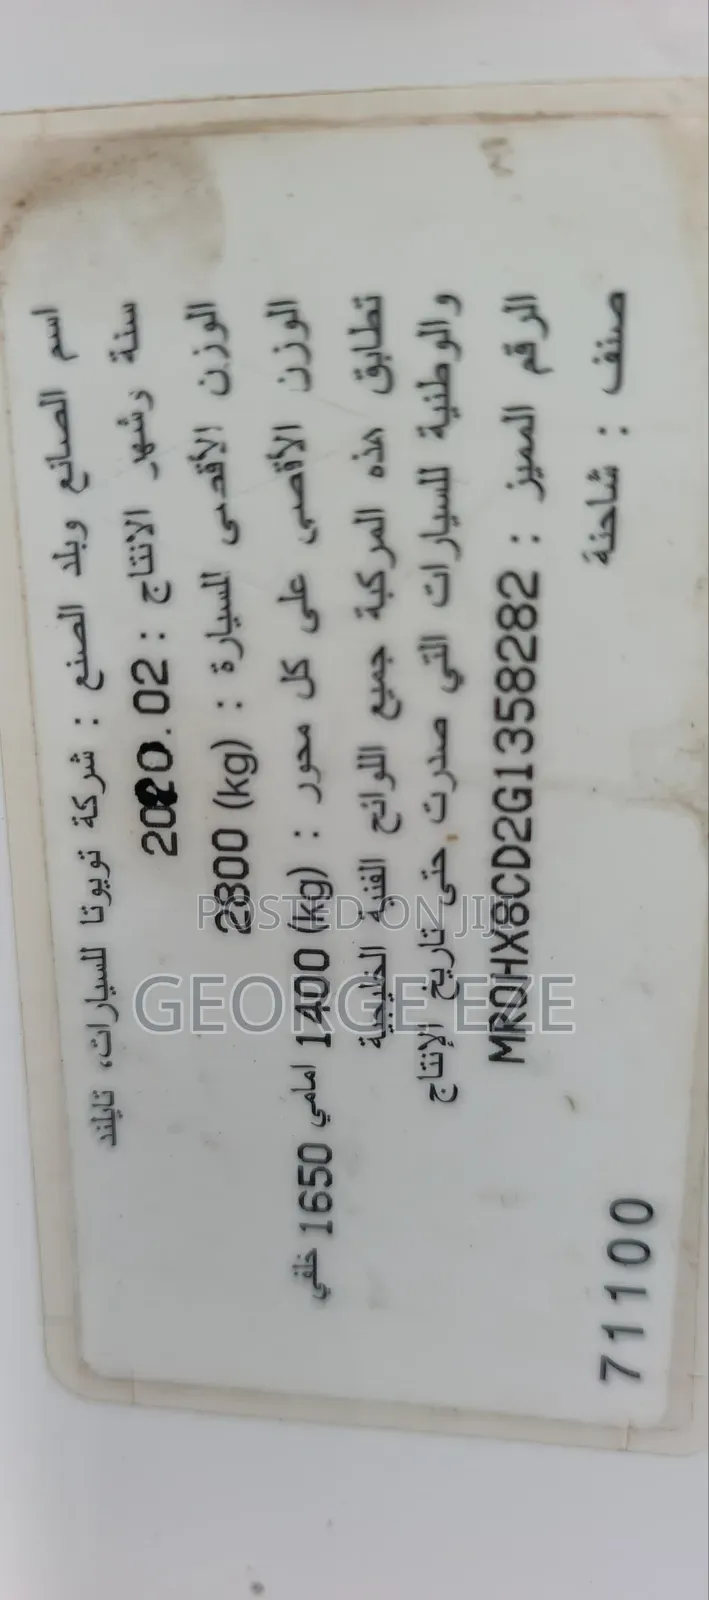 اسم الصانع وبلد الصنع : شركة تويوتا للسيارات، تايلند
سنة وشهر الانتاج : 2020.02
الوزن الأقصى للسيارة : 2800 (kg)
الوزن الأقصى على كل محور : 1400 (kg) امامي 1650 خلفي
تطابق هذه المركبة جميع اللوائح الفنية الخليجية
والوطنية للسيارات التي صدرت حتى تاريخ الإنتاج
الرقم المميز : MR0HX8CD2G1358282
صنف : شاحنة
71100
POSTED ON JIJI
GEORGE EZE